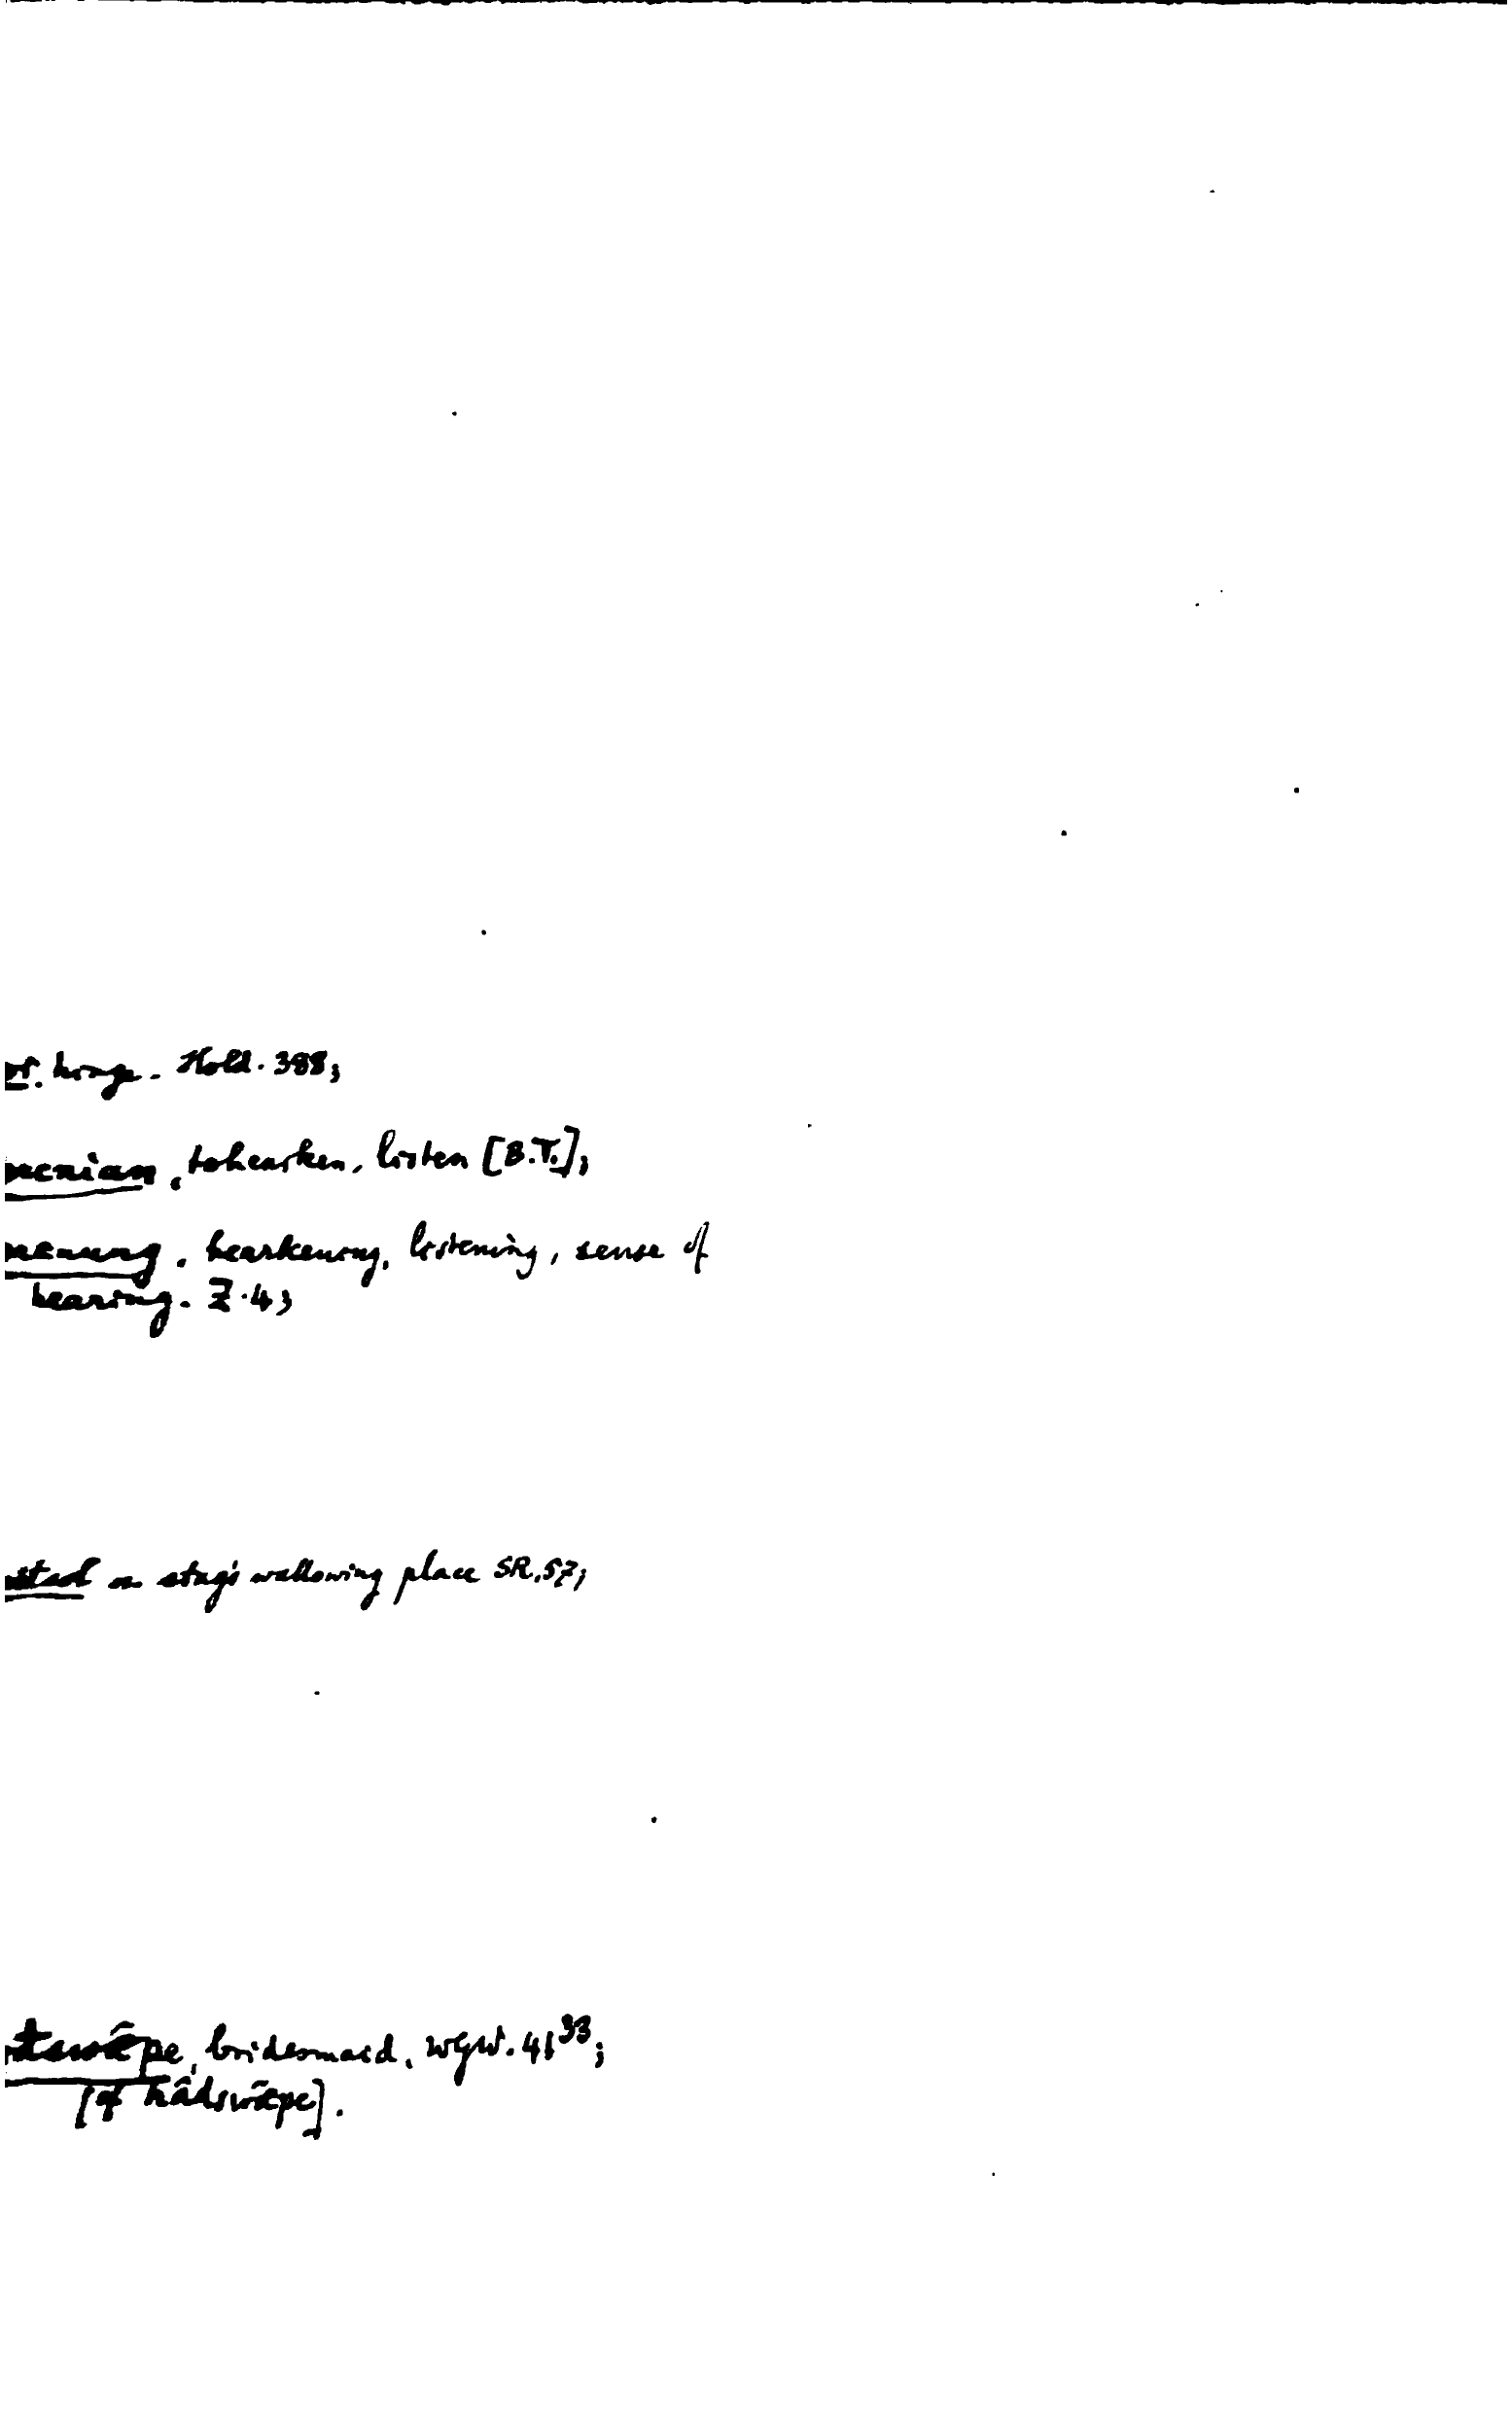 hinge. Hold. 388;
ncnian, to hearken, listen [B.T.];
ncnung. hearkening, listening, sense of
hearing. Z.43
stal a stag's wallowing place SR.57;
tswǣpe, bridesmaid. WgW. 41³³;
[cf hâdswǣpe].